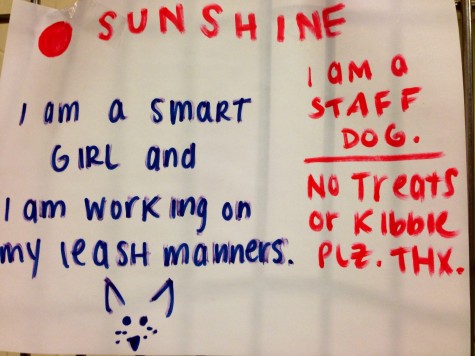 SUNSHINE
I am a SmaRT
GIRL and
I am working on
my leaSH manners.
I am a
STAFF
DOG.
No Treats
or Kibble
PLZ. THX.